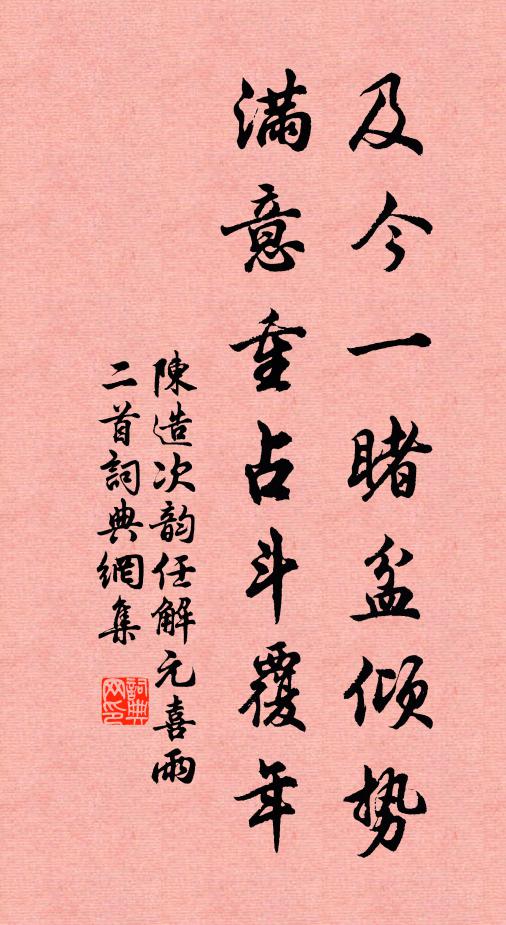 及今一睹盆倾势
滿意重占斗覆年
陳造次韵任解元喜雨
二首詞典網集
詞典网印